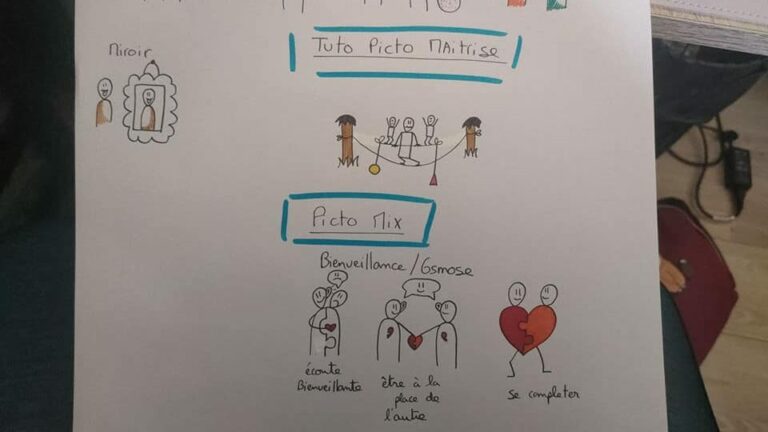 Miroir
Tuto Picto MAitrise
Picto Mix
Bienveillance/Osmose
écoute
Bienveillante
être à la
place de
l'autre
se completer